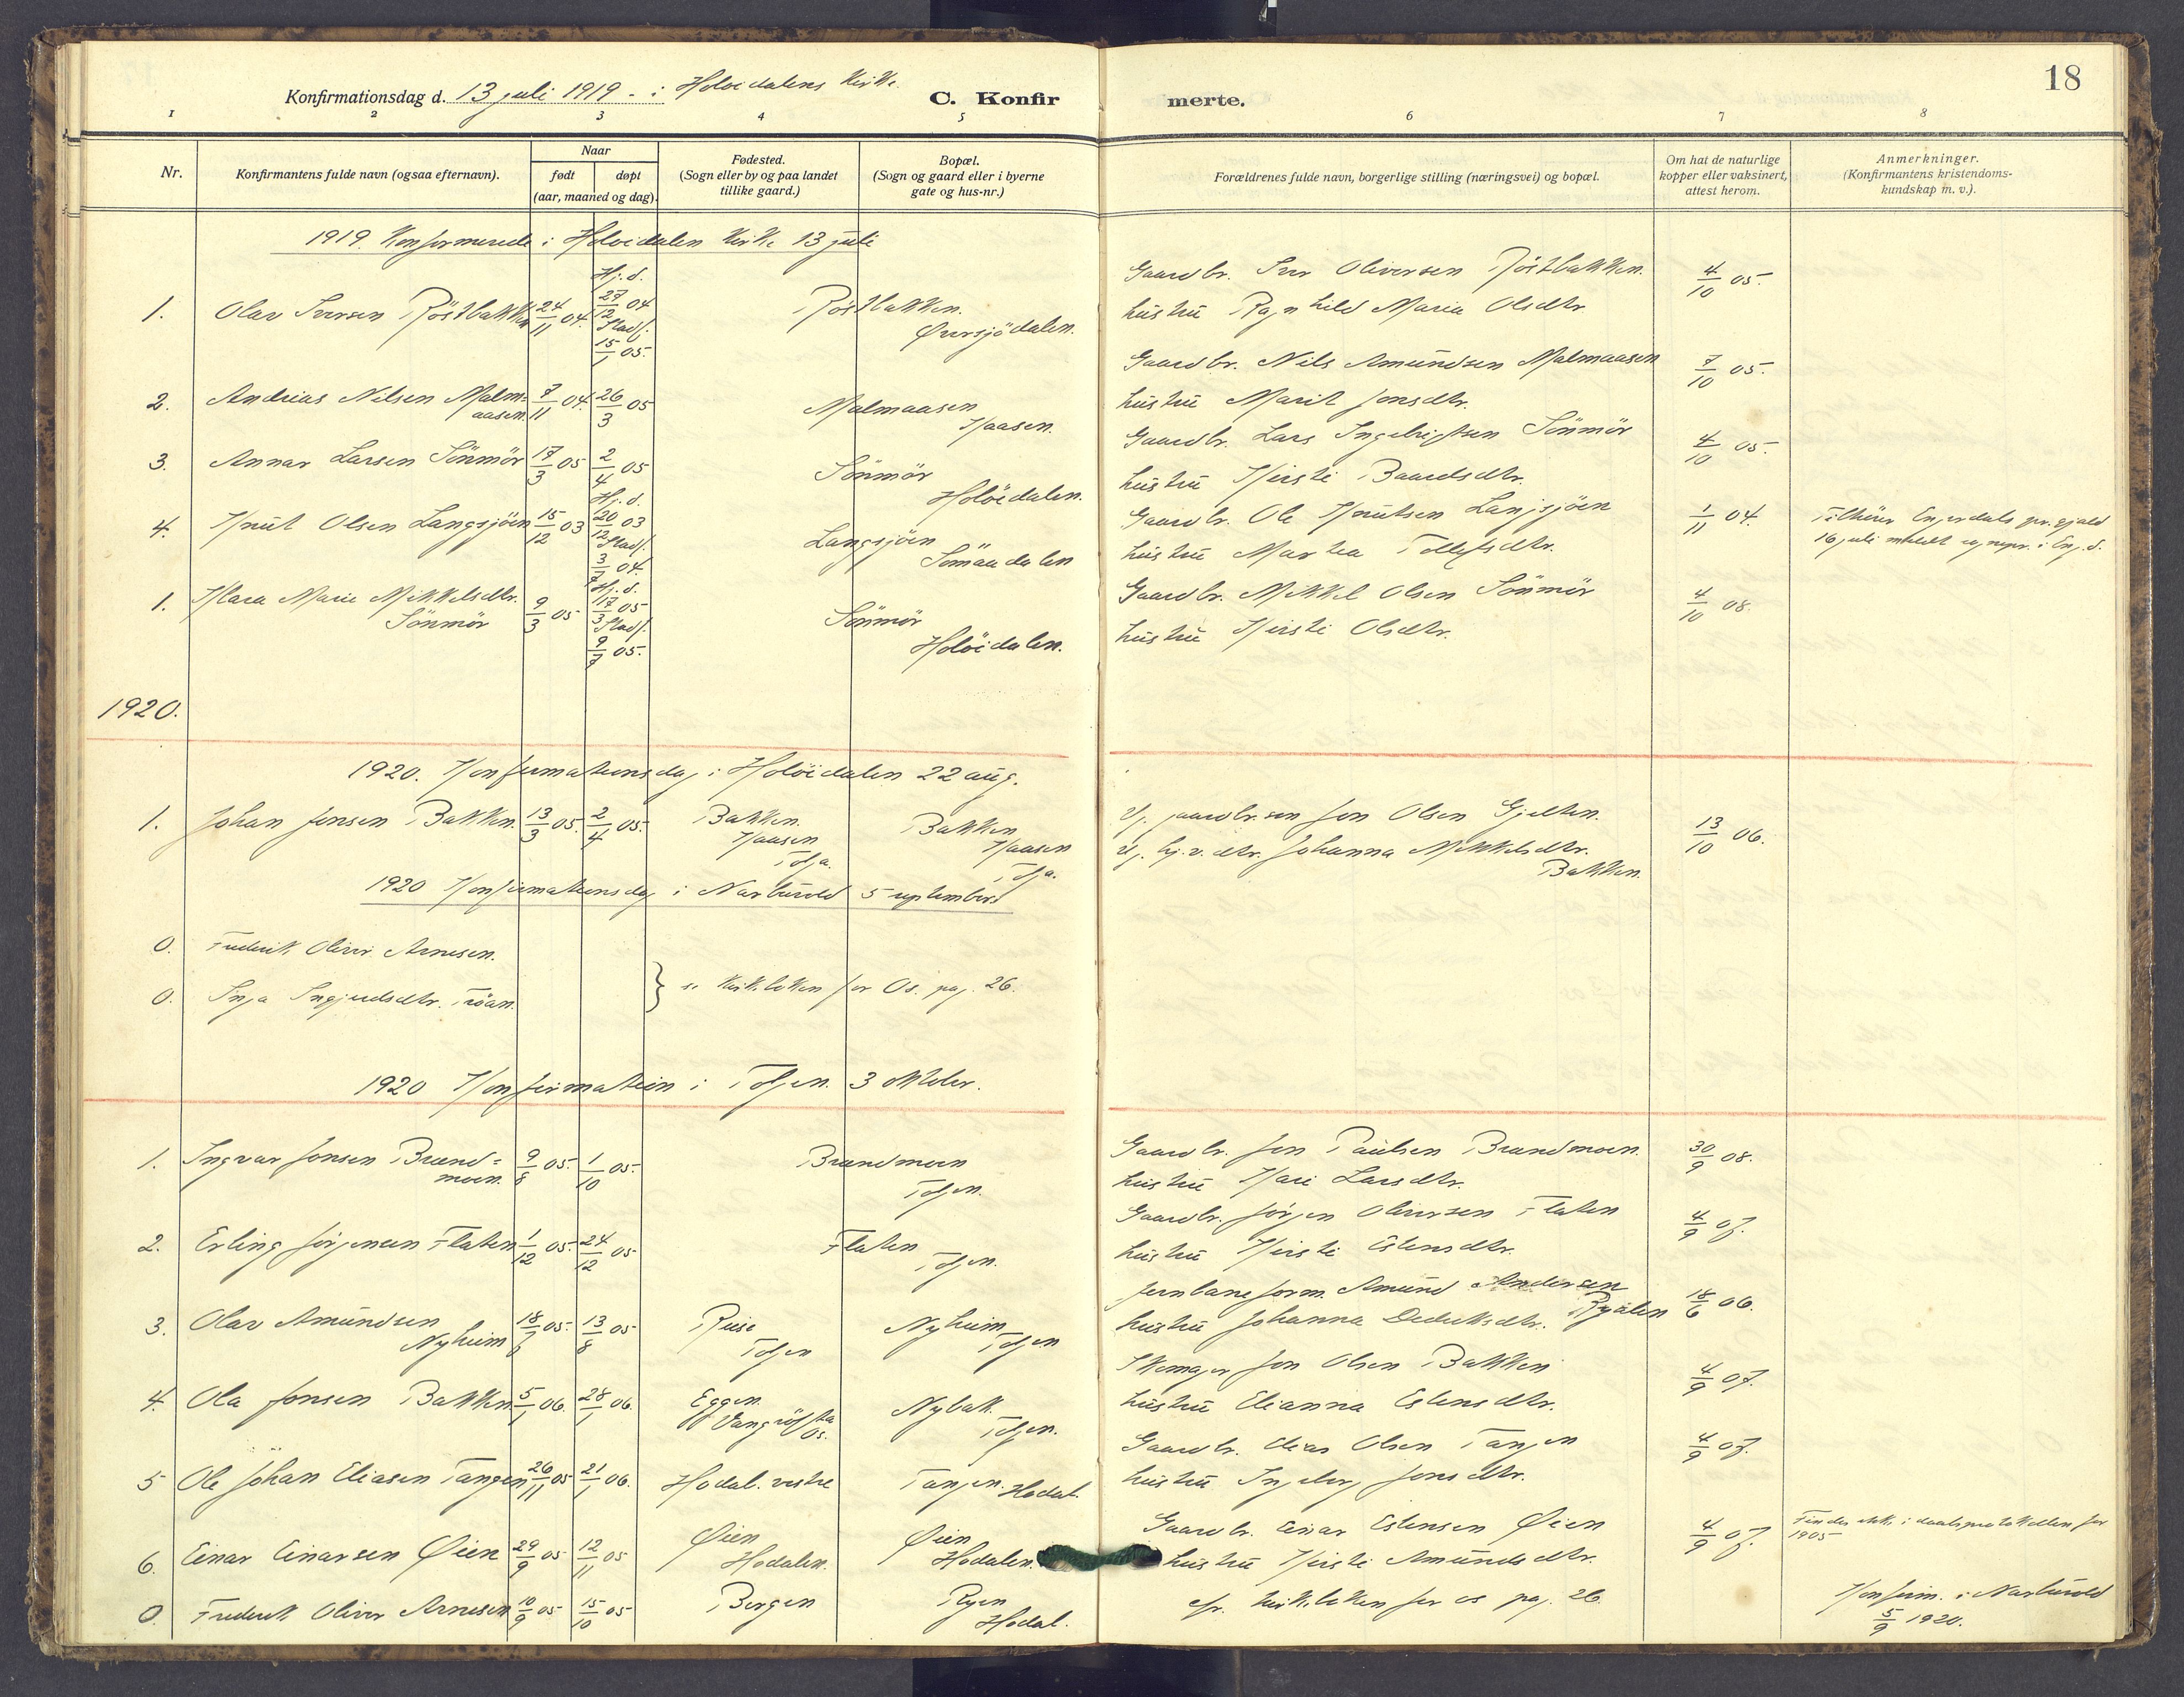 18
Konfirmationsdag d. 13 juli 1919 - i Holöidalens Kirke.
C. Konfir merte.
1 2 3 4 5 6 7 8
Nr.
Konfirmantens fulde navn (ogsaa efternavn).
Naar
født døpt
(aar, maaned og dag).
Fødested.
(Sogn eller by og paa landet
tillike gaard.)
Bopæl.
(Sogn og gaard eller i byerne
gate og hus-nr.)
Forældrenes fulde navn, borgerlige stilling (næringsvei) og bopæl.
Om hat de naturlige
kopper eller vaksinert,
attest herom.
Anmerkninger.
(Konfirmantens kristendoms-
kundskap m. v.).
1919. Konfirmerede i Holöidalen Kirke 13 juli
1. Olav Iversen Röstbakken 24/11 04. Hj. d. 27/12 04 Stadf. 15/1 05. Röstbakken. Øversjödalen.
Gaardbr. Iver Oliversen Röstbakken. 4/10 05.
hustru Ragnhild Maria Olsdtr.
2. Andreas Nilsen Malm-
aasen. 7/11 04. 26/3 05 Malmaasen Kaasen.
Gaardbr. Nils Amundsen Malmaasen 7/10 05.
hustru Marit Jonsdtr.
3. Annar Larsen Sönmör 17/3 05 2/4 05 Sönmör Holöidalen.
Gaardbr. Lars Ingebrigtsen Sönmör 4/10 05.
hustru Kirsti Baardsdtr.
4. Knut Olsen Langsjöen 15/12 03 Hj. d. 20/12 03 Stadf. 3/7 04. Langsjöen Sömaadalen
Gaardbr. Ole Knutsen Langsjöen 1/11 04.
hustru Martea Tollefsdtr.
Tilhörer Engerdals pr.gjald
16 juli meldt til i Eng. d.
1. Klara Marie Mikkelsdtr.
Sönmör 9/3 05 Hj. d. 17/3 05 Stadf. 9/7 05. Sönmör Holöidalen.
Gaardbr. Mikkel Olsen Sönmör 4/10 08.
hustru Kirsti Olsdtr.
1920.
1920. Konfirmationsdag i Holöidalen 22 aug.
1. Johan Jonsen Bakken. 13/3 05. 2/4 05. Bakken. Kaasen Tolga. Bakken Kaasen Tolga.
Ug. gaardbr.søn Jon Olsen Gjelten. 13/10 06.
Ug. dtr. Johanna Mikkelsdtr.
Bakken.
1920 Konfirmationsdag i Narbuvold 5 september.
0. Frederik Oliver Arnesen.
0. Inga Ingjeldsdtr. Tröan. } se Kirkeboken for Os. pag. 26.
1920 Konfirmation i Tolgen. 3 oktober.
1. Ingvar Jonsen Brænd-
moen. 9/8 05. 1/10 05. Brændmoen Tolgen.
Gaardbr. Jon Paulsen Brændmoen. 30/9 08.
hustru Kari Larsdtr.
2. Erling Jörgensen Flaten 1/12 05. 24/12 05 Flaten Tolgen.
Gaardbr. Jörgen Oliversen Flaten 4/9 07.
hustru Kirsti Estensdtr.
3. Olav Amundsen
Nyheim 18/6 05. 13/8 05 Riise Tolgen Nyheim Tolgen
Jernbaneform. Amund Andersen 18/6 06.
hustru Johanna Dideriksdtr.
4. Ola Jonsen Bakken 5/1 06. 28/1 06. Eggen. Vangröfta Os. Nybak. Tolgen.
Skomager Jon Olsen Bakken 4/9 07.
hustru Elianna Estensdtr.
5 Ole Johan Eliasen Tangen 26/11 05 21/1 06. Hodal. vestre Tangen. Hodal.
Gaardbr. Elias Olsen Tangen 4/9 07.
hustru Ingeborg Jonsdtr.
6. Einar Einarsen Øien 29/9 05 12/11 05 Øien Hodalen. Øien Hodalen.
Gaardbr. Einar Estensen Øien 4/9 07.
hustru Kirsti Amundsdtr.
Findes ikke i daabsprotokollen for
1905
0. Frederik Oliver Arnesen 10/9 05 15/10 05 Bergen Ryen Hodal.
cfr. kirkeboken for Os pag. 26.
Konfirm. i Narbuvold
5/9 1920.